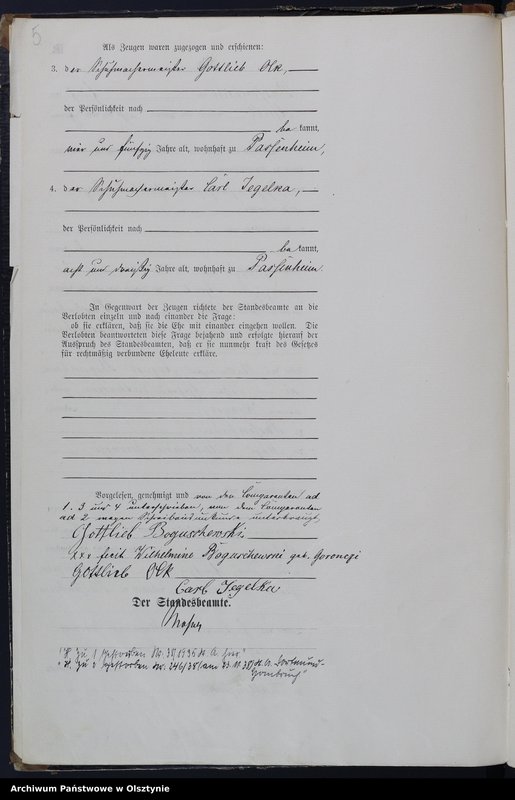 5
Als Zeugen waren zugezogen und erschienen:
3. der Schuhmachermeister Gottlieb Olk,
der Persönlichkeit nach
bekannt,
vier und fünfzig Jahre alt, wohnhaft zu Passenheim,
4. der Schuhmachermeister Carl Jegelka,
der Persönlichkeit nach
bekannt,
acht und dreißig Jahre alt, wohnhaft zu Passenheim.
In Gegenwart der Zeugen richtete der Standesbeamte an die
Verlobten einzeln und nach einander die Frage:
ob sie erklären, daß sie die Ehe mit einander eingehen wollen. Die
Verlobten beantworteten diese Frage bejahend und erfolgte hierauf der
Ausspruch des Standesbeamten, daß er sie nunmehr kraft des Gesetzes
für rechtmäßig verbundene Eheleute erkläre.
Vorgelesen, genehmigt und von den Comparenten ad
1. 3 und 4 unterschrieben, von dem Comparenten
ad 2 wegen Schreibensunkunde unterkreuzt,
Gottlieb Boguschewski
xxx Wilhelmine Boguschewski geb.
Gottlieb Olk
Carl Jegelka
Der Standesbeamte.
"H. zu 1 gestorben Nr.
"H. zu 2 gestorben. Nr. 246/38 am 23.11.38 St. A. Dortmund-
Archiwum Państwowe w Olsztynie